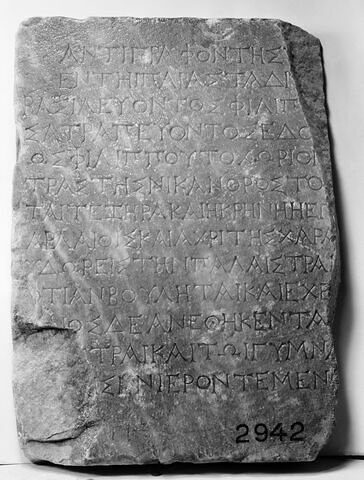 ΑΝΤΙΓΡΑΦΟΝΤΗΣ
ΕΝΤΗΙΠΑΡΑΣΤΑΔΙ
ΒΑΣΙΛΕΥΟΝΤΟΣΦΙΛΙΠ
ΣΑΤΡΑΠΕΥΟΝΤΟΣΕΔΟ
ΩΣΦΙΛΙΠΠΟΥΤΟΧΩΡΙΟΙ
ΤΡΑΣΤΗΣΝΙΚΑΝΟΡΟΣΤΟ
ΚΑΙΗΚΡΗΝΗΗΕΙ
ΚΑΙΑΧΡΙΤΗΣΧΑΡΑ
ΥΔΩΡΕΙΣΤΗΝΠΑΛΑΙΣΤΡΑ
ΑΝΒΟΥΛΗΤΑΙΚΑΙΕΧΕ
ΟΣΔΕΑΝΕΘΗΚΕΝΤΑ
ΤΡΑΙΚΑΙΤΩΙΓΥΜΝΑ
ΣΙΝΙΕΡΟΝΤΕΜΕΝ
2942